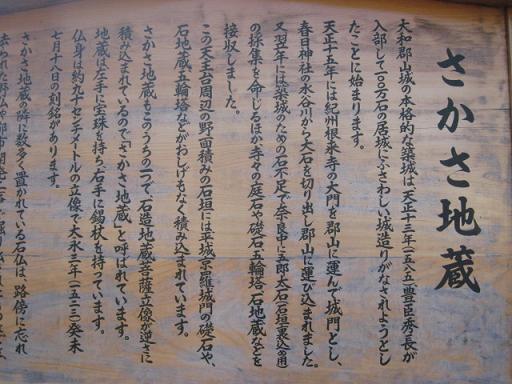 さかさ地蔵
大和郡山城の本格的な築城は、天正十三年(一五八五)豊臣秀長が
入部して一〇〇万石の居城にふさわしい城造りがなされようとし
たことに始まります。
天正十五年には紀州根来寺の大門を郡山に運んで城門とし、
春日神社の水谷川から大石を切り出し郡山に運び込まれました。
又翌年には築城のための石不足で奈良中に五郎太石(石垣裏込め用)
の採集を命じるほか寺々の庭石や礎石、五輪塔、石地蔵などを
接収しました。
この天主台周辺の野面積みの石垣には平城京羅城門の礎石や、
石地蔵五輪塔などがおしげもなく積み込まれています。
さかさ地蔵もこのうちの一つで、石造地蔵菩薩立像が逆さに
積み込まれているので「さかさ地蔵」と呼ばれています。
地蔵は左手に宝珠を持ち、右手に錫杖を持っています。
仏身は約九十センチメートルの立像で大永三年(一五二三)癸未
七月十八日の刻銘があります。
さかさ地蔵の隣に数多く置かれている石仏は、路傍に忘れ